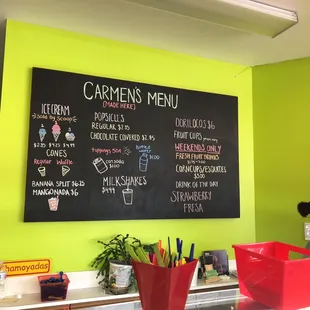 CARMEN'S MENU
(MADE HERE)
ICE CREAM
$2.75 $3.95 $4.95
CONES
Regular Waffle
BANANA SPLIT $6.75
MANGONADA $6
POPSICLES
REGULAR $2.75
CHOCOLATE COVERED $2.95
toppings 50¢
soda
water
MILKSHAKES
$4.99
DORILOCOS $6
FRUIT CUPS
WEEKENDS ONLY
FRESH FRUIT DRINKS
CORNCUPS/ESQUITES
$3.00
DRINK OF THE DAY
STRAWBERRY
FRESA
Chamoyadas